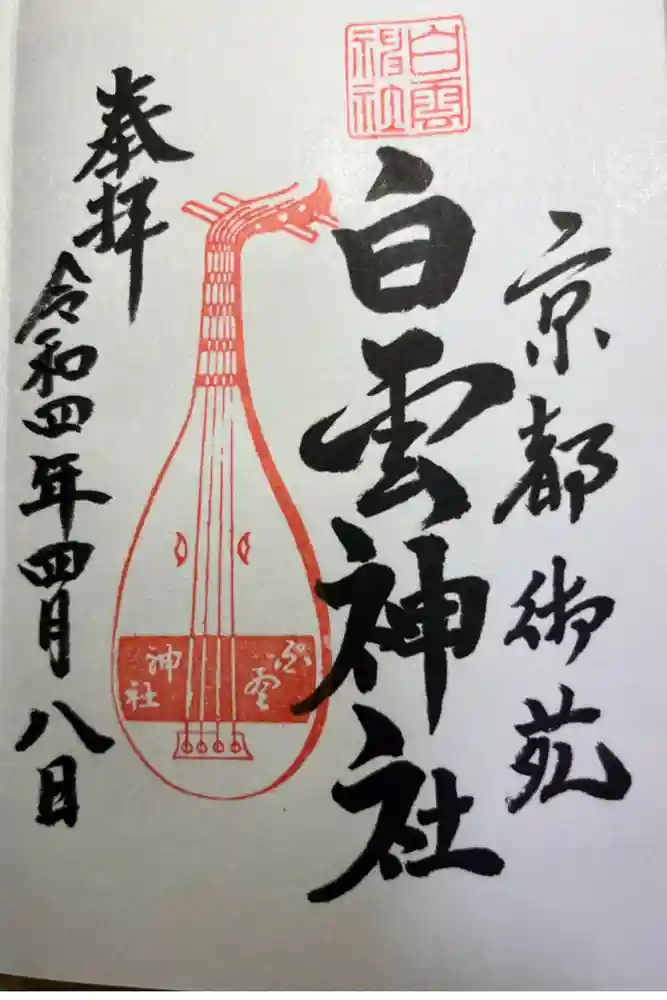 京都御苑
白雲神社
白雲神社
白雲神社
奉拝
令和四年四月八日